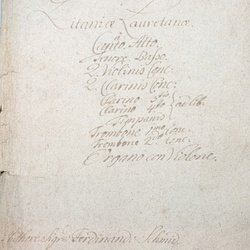 Litaniæ Lauretanæ.
Canto, Alto
Tenore, Basso.
2 Violinis Conc:
2 Clarinis Conc:
Clarino 3tio
Clarino 4to ad lib.
Tympanis
Trombone 1mo Conc:
Trombone 2do Conc:
Organo con Violone.
Authore Sigre Ferdinando Schmid